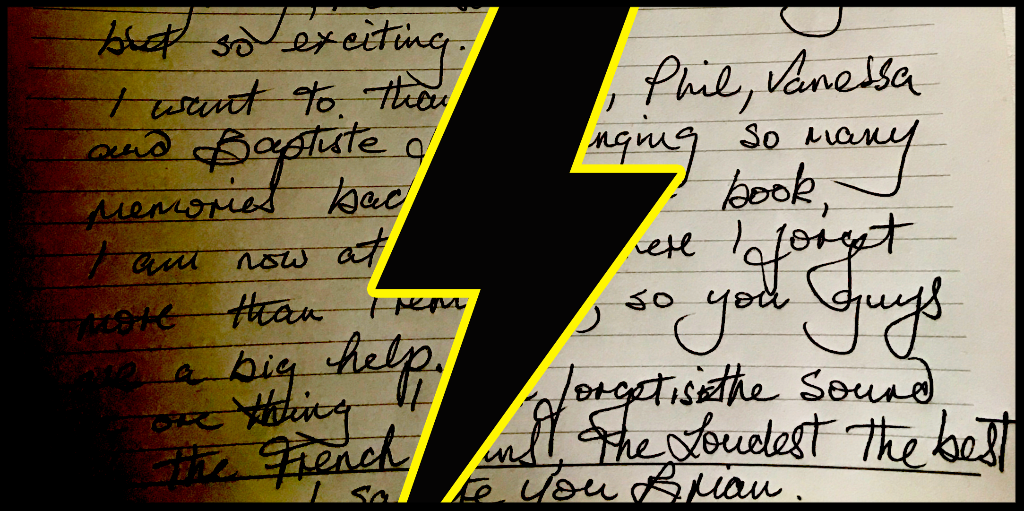 but so exciting.
I want to than , Phil, Vanessa
and Baptiste nging so many
memories bac book,
I am now at ere I forget
more than I rem so you guys
are a big help.
one thing I'll forget is the Sound
the French ans, The Loudest The best
I sa te you Brian.